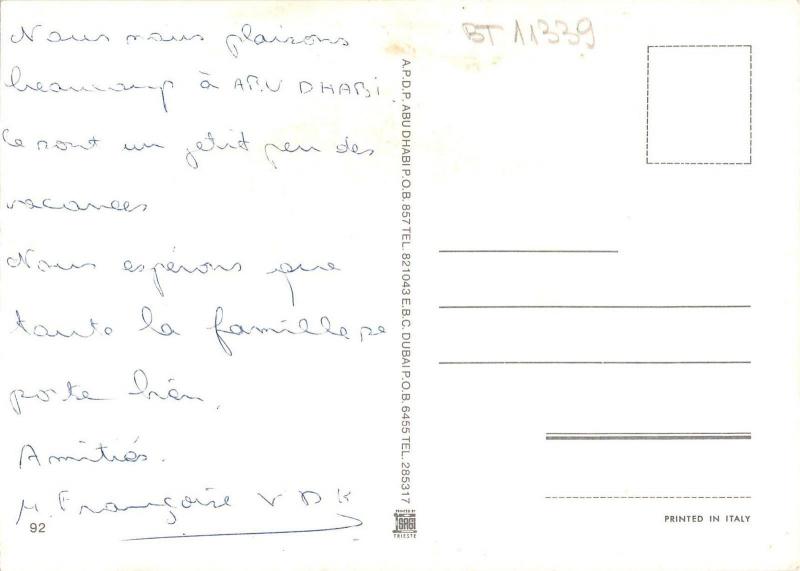 Nous nous plaisons
beaucoup à ABU DHABI.
Ce sont un petit peu des
vacances
Nous espérons que
toute la famille se
porte bien.
Amitiés.
M. Françoise V D K
92
BT 11339
A.P.D.P. ABU DHABI P.O.B. 857 TEL. 821043 E.B.C. DUBAI P.O.B. 6455 TEL. 285317
PRINTED BY
SAGI
TRIESTE
PRINTED IN ITALY